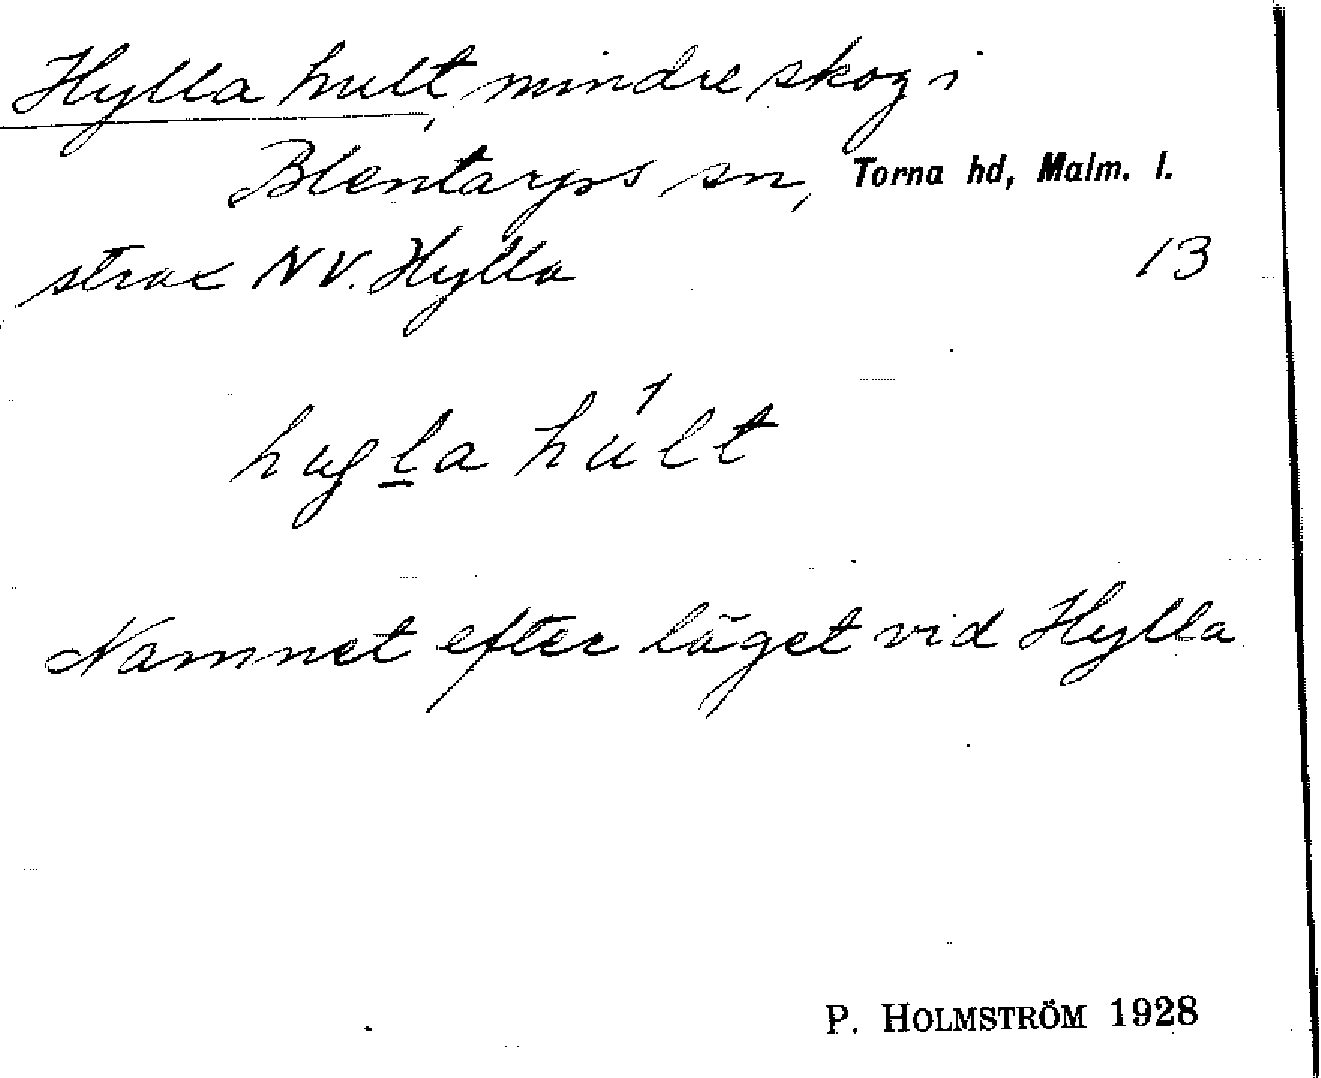 Hylla hult, mindre skog i
Blentarps sn, Torna hd, Malm. l.
strax NV. Hylla 13
hult
Namnet efter läget vid Hylla
P. HOLMSTRÖM 1928